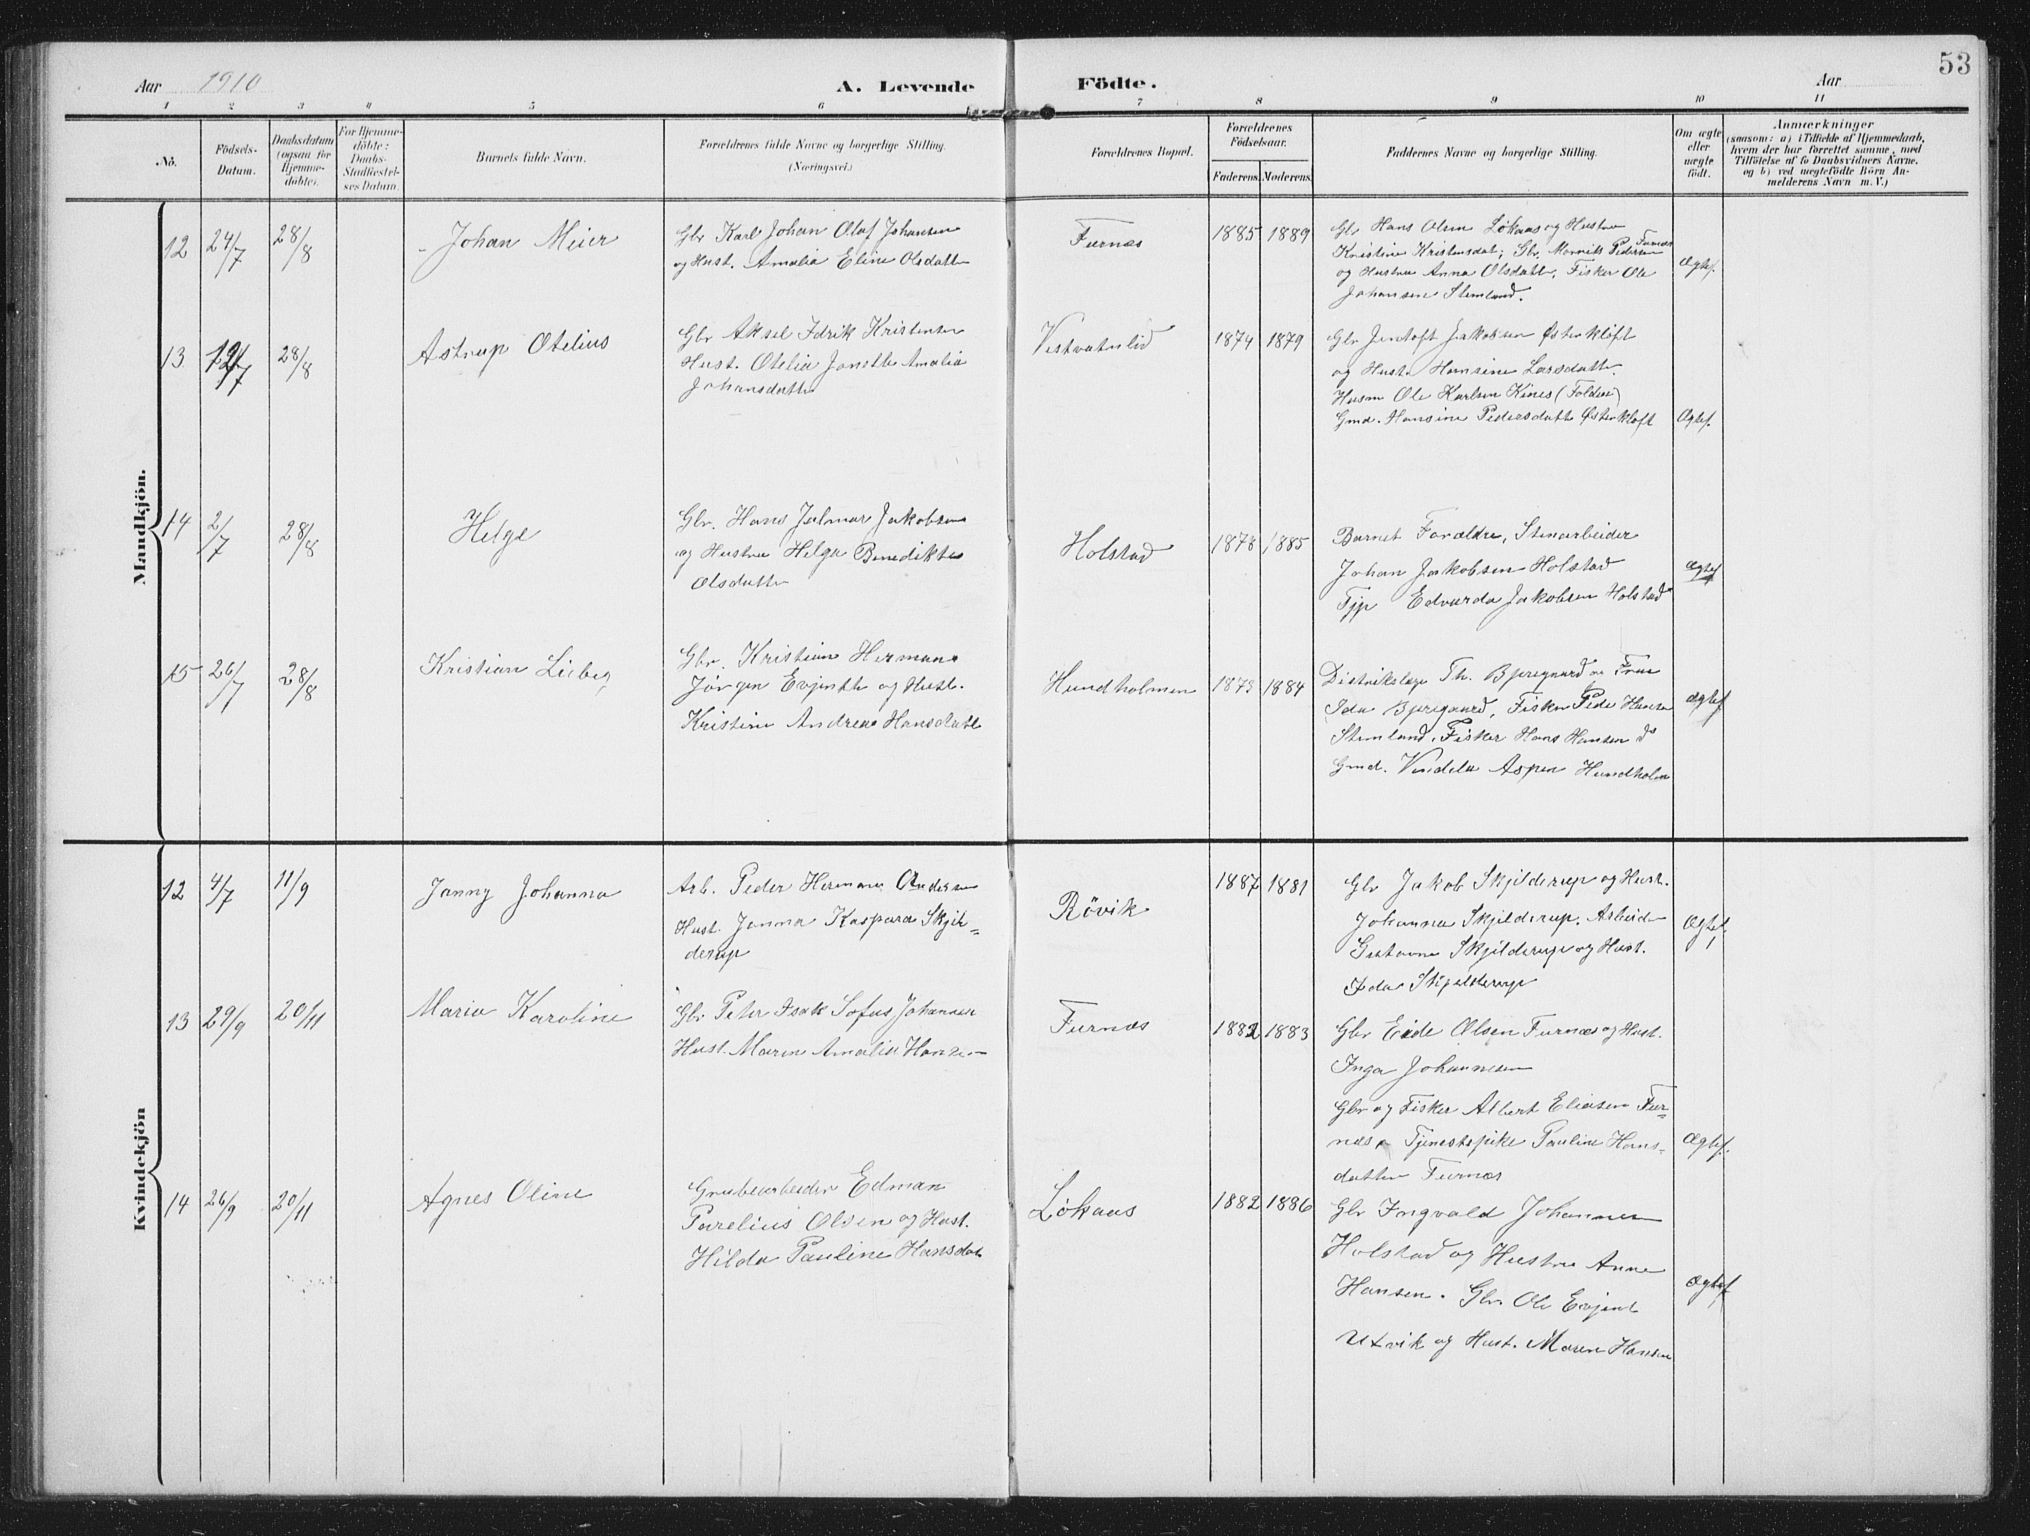 53
Aar 1910
A. Levende Födte.
Aar
1 2 3 4 5 6 7 8 9 10 11
No.
Födsels-
Datum.
Daabsdatum
(ogsaa for
Hjemme-
döbte).
For Hjemme-
döbte:
Daabs-
Stadfæstel-
ses Datum.
Barnets fulde Navn.
Forældrenes fulde Navne og borgerlige Stilling.
(Næringsvei.)
Forældrenes Bopæl.
Forældrenes
Födselsaar.
Faderens. Moderens.
Faddernes Navne og borgerlige Stilling.
Om ægte
eller
uægte
födt.
Anmærkninger
(saasom: a) i Tilfælde af Hjemmedaab,
hvem der har forrettet samme, med
Tilföielse af to Daabsvidners Navne.
og b) ved uægtefödte Börn An-
melderens Navn m. V.)
Mandkjön.
12 24/7 28/8
Johan Meier
Gbr Karl Johan Olaf Johansen
og Hust. Amalia Eline Olsdatter
Furnæs
1885 1889
Gbr Hans Olsen Løkaas og Hustru
Kristine Kristensdat; Gbr. Pedersen Furnæs
og Hustru Anna Olsdatt, Fisker Ole
Johansen Stemland.
Ægtef.
13 28/8
Astrup Otelius
Gbr Aksel Fdrik Kristensen
Hust. Otelia Janette Amalia
Johansdatter
Vestvatnlid
1874 1879
Gbr Jentoft Jakobsen Østerkløft
og Hust. Hansine Larsdatter.
Husm Ole Karlsen Kines (Folden)
Gmd. Hansine Pedersdatter Østerkløft
Ægtef.
14 2/7 28/8
Helge
Gbr. Hans Jalmar Jakobsen
og Hustru Helga Benedikte
Olsdatter
Holstad
1878 1885
Barnet Forældre, Stenarbeider
Johan Jakobsen Holstad
Tjp Edvarda Jakobsen Holstad
Ægtef
15 26/7 28/8
Kristian Lieberg
Gbr. Kristian Hermann
Jørgen Evjenth og Hust.
Kristine Andrea Hansdatt
Hundholmen
1873 1884
Distrikslæge Th. Bjerregaard og Frue
Ida Bjerregaard, Fisker Peder Hansen
Stemland. Fisker Hans Hansen ds
Gmd. Vendela Aspen Hundholm
Ægtef
Kvindekjön
12 4/7 11/9
Janny Johanna
Arb. Peder Herman Andersen
Hust. Janna Kaspara Skjil=
derup
Røvik
1887 1881
Gbr Jakob Skjilderup og Hust.
Johanna Skjilderup. Arbeid
Gustavne Skjilderup og Hust.
Ida Skjelderup
Ægtef
13 29/9 20/11
Maria Karoline
Gbr Peter Isak Sofus Johannes
Hust. Maren Amalia Hansen
Furnæs
1882 1883
Gbr Eide Olsen Furnæs og Hust.
Inga Johannesen
Gbr og Fisker Albert Eliasen Fur=
næs, Tjenestepike Pauline Hans-
datter Furnæs
Ægtef.
14 26/9 20/11
Agnes Oline
Grubearbeider Edman
Parelius Olsen og Hust.
Hilda Pauline Hansdat
Løkaas
1882 1886
Gbr Ingvald Johannes
Holstad og Hustru Anne
Hansen. Gbr. Ole Evjent
Utvik og Hust. Maren Hansen
Ægtef